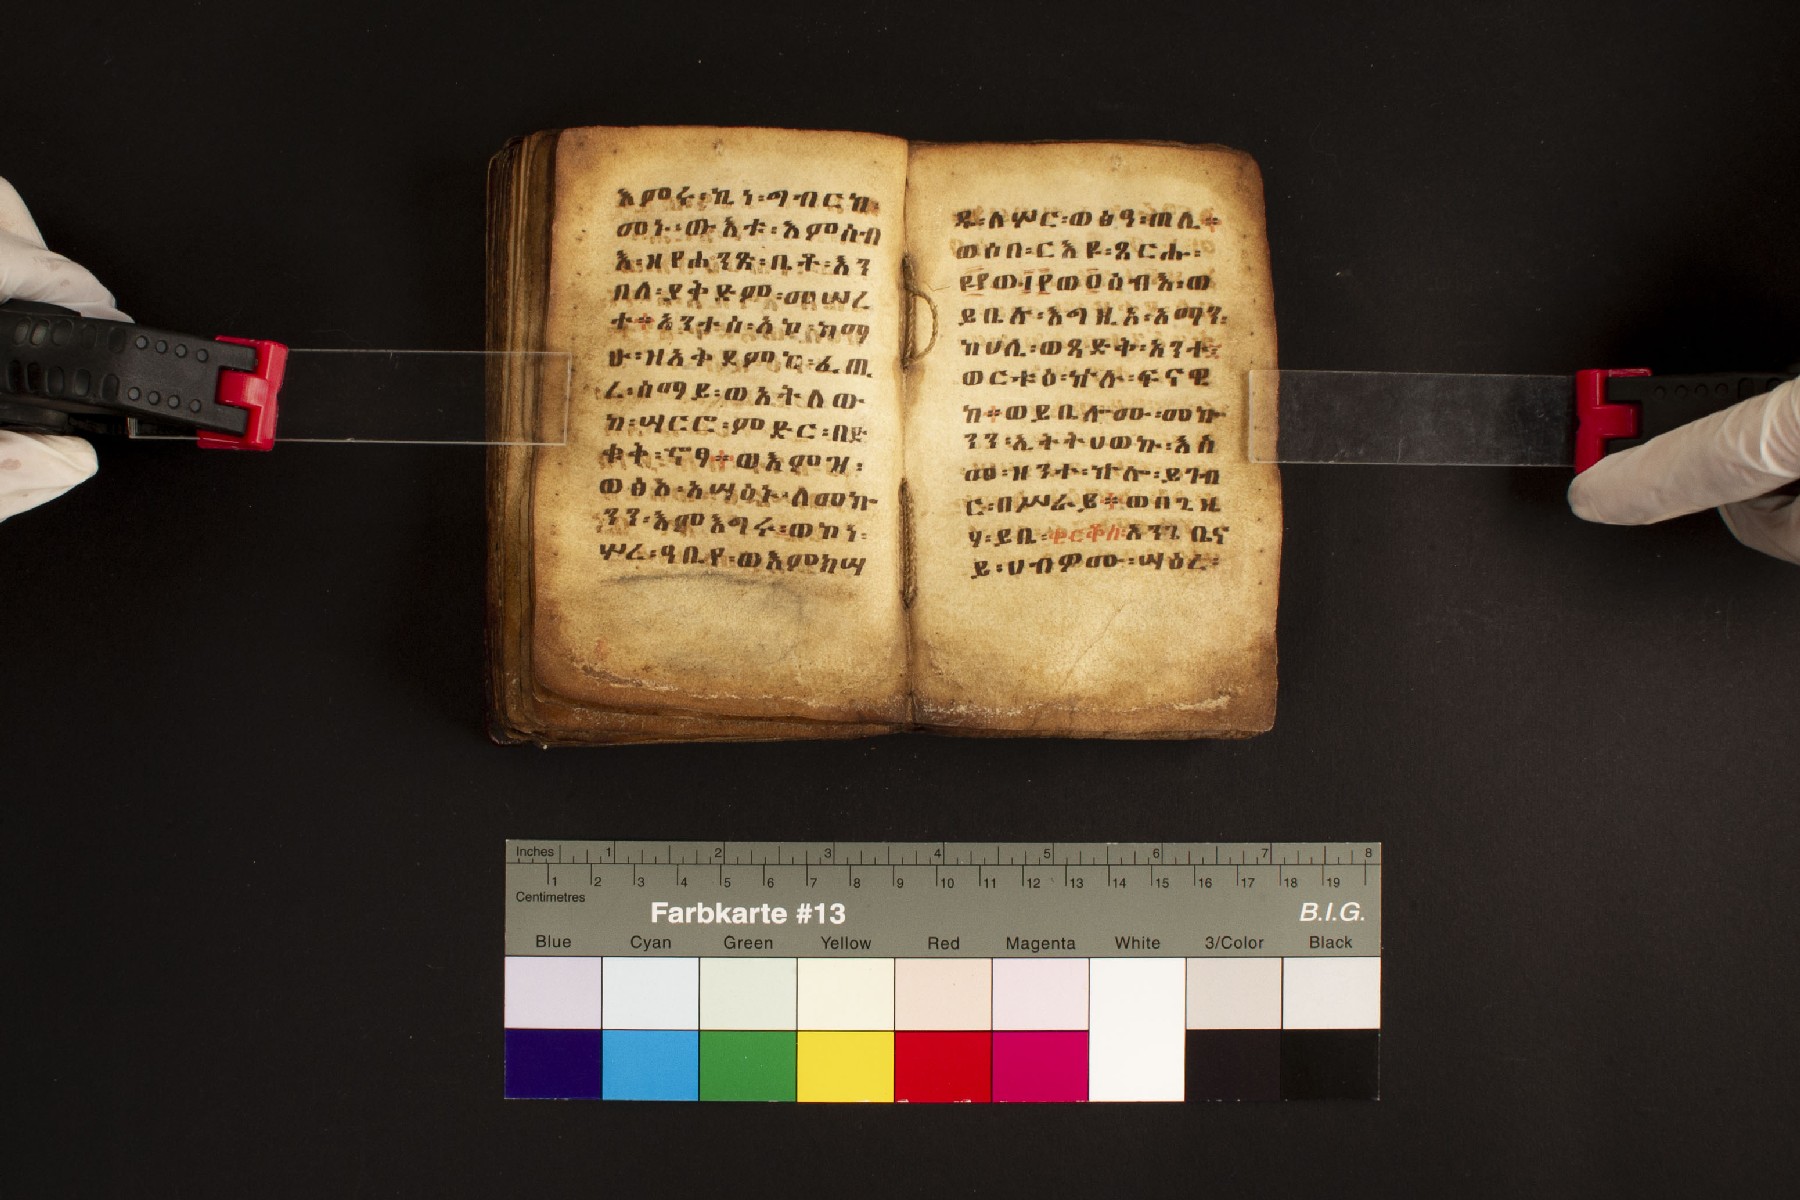 እምሩ፡ኪነ፡ግብርከ፡
መኑ፡ውእቱ፡እምሰብ
እ፡ዘየሐንጽ፡ቤት፡እን
በለ፡ያቅድም፡መሠረ
ተ፡፡አንተሰ፡አኮ፡ከማ
ሁ፡ዝአቅደምከ፡ፈጢ
ረ፡ሰማይ፡ወእትለው
ከ፡ሣርሮ፡ምድር፡በድ
ወፅአ፡አሣዕኑ፡ለመኰ
ንን፡እምእግሩ፡ወኮነ፡
ሦረ፡ዓቢየ፡ወእምከሣ
ዱ፡ለሦር፡ወፅዓ፡ጠሊ፡፡
ወሶበ፡ርእዩ፡ጸርሑ፡
ይቤሉ፡እግዚኦ፡አማን፡
ከሀሊ፡ወጻድቅ፡አንተ፡
ወርቱዕ፡ኵሉ፡ፍናዊ
ከ፡፡ወይቤሎሙ፡መኰ
ንን፡ኢትትሀወኩ፡እስ
መ፡ዝንተ፡ኵሎ፡ይገብ
ር፡በሥራይ፡፡ወበጊዜ
ሃ፡ይቤ፡ቂርቆስ፡አንጌቤና
ይ፡ሀብዎሙ፡ሣዕረ፡
Inches 1 2 3 4 5 6 7 8
1 2 3 4 5 6 7 8 9 10 11 12 13 14 15 16 17 18 19
Centimetres
Farbkarte #13 B.I.G.
Blue Cyan Green Yellow Red Magenta White 3/Color Black